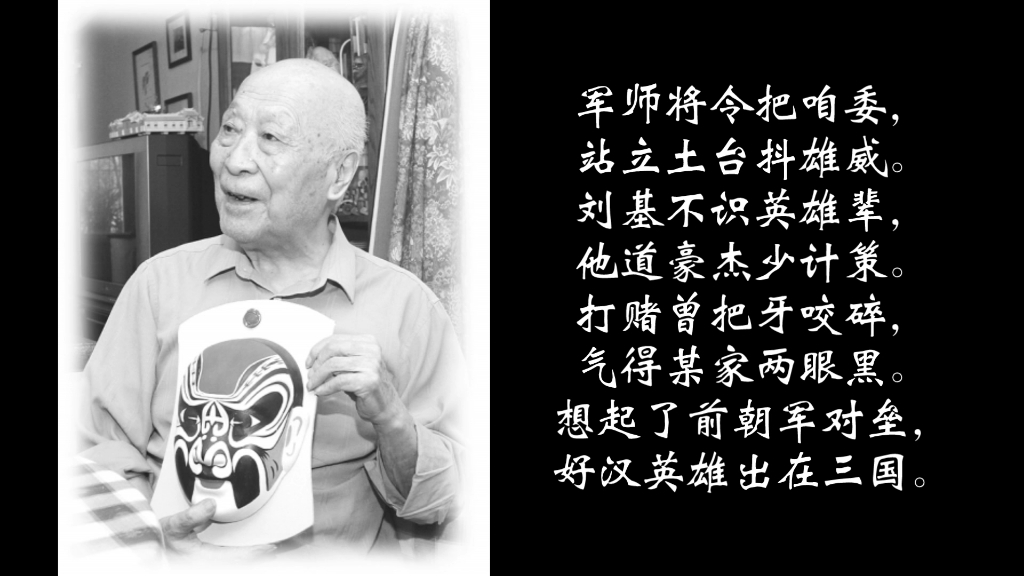 军师将令把咱委，
站立土台抖雄威。
刘基不识英雄辈，
他道豪杰少计策。
打赌曾把牙咬碎，
气得某家两眼黑。
想起了前朝军对垒，
好汉英雄出在三国。